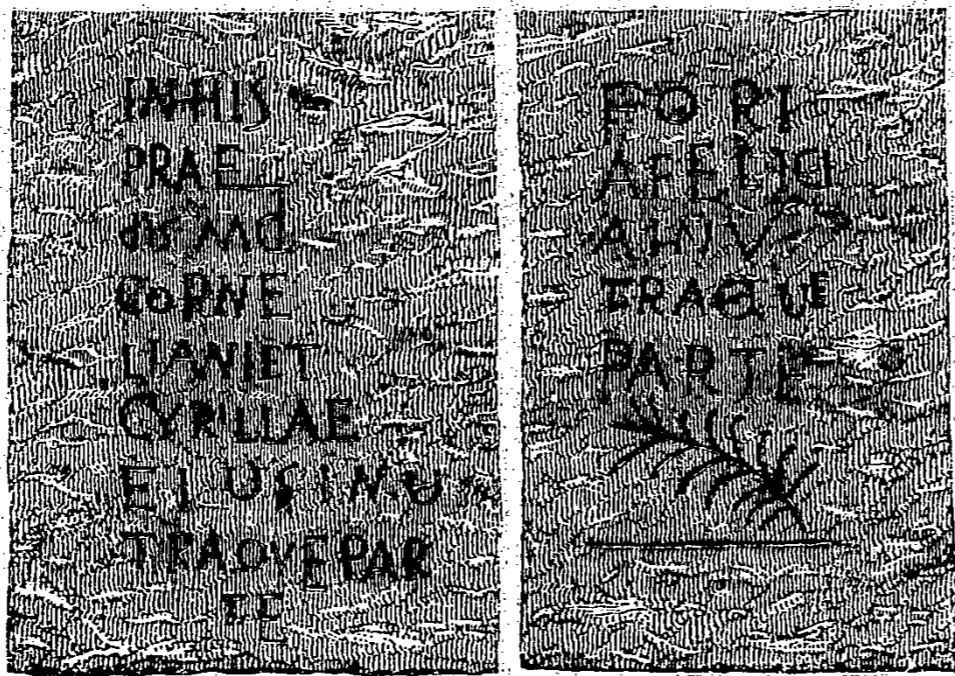 INHIS
PRAE
dis MC.
CORNE
LIANIET
CYRILLAE
EIUSINU
TRAQVEPAR
TE
FORI
AFELICI
AINV
TRAQUE
PARTE